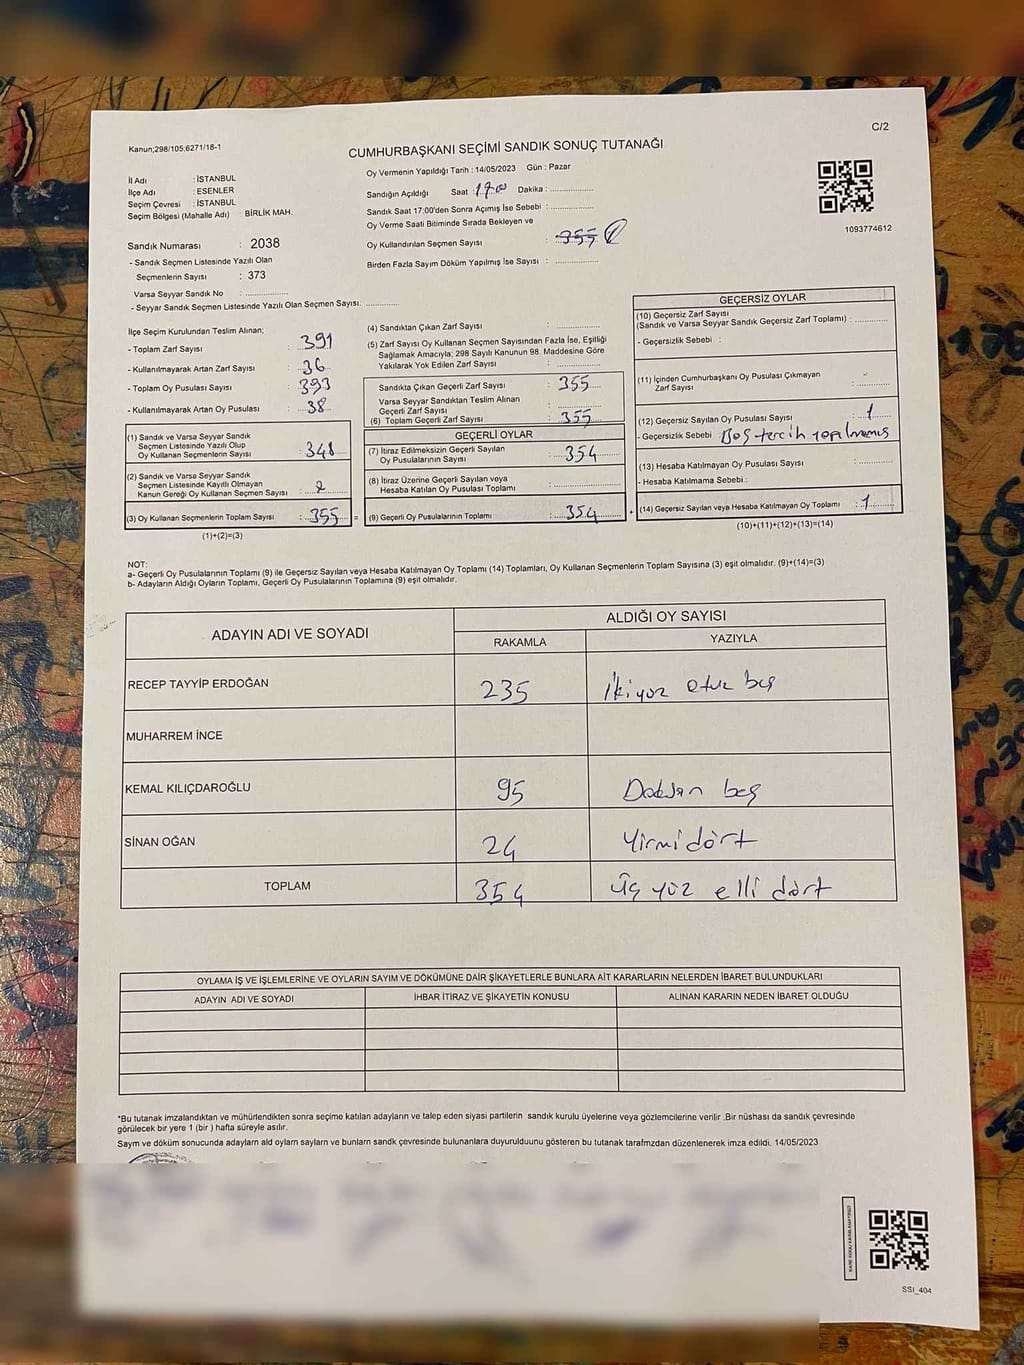 C/2
Kanun;298/105;6271/18-1
CUMHURBAŞKANI SEÇİMİ SANDIK SONUÇ TUTANAĞI
İl Adı : İSTANBUL
İlçe Adı : ESENLER
Seçim Çevresi : İSTANBUL
Seçim Bölgesi (Mahalle Adı) : BİRLİK MAH.
Sandık Numarası : 2038
- Sandık Seçmen Listesinde Yazılı Olan
Seçmenlerin Sayısı : 373
Varsa Seyyar Sandık No :
- Seyyar Sandık Seçmen Listesinde Yazılı Olan Seçmen Sayısı:
Oy Vermenin Yapıldığı Tarih : 14/05/2023 Gün : Pazar
Sandığın Açıldığı Saat : 17 00 Dakika :
Sandık Saat 17:00'den Sonra Açımış İse Sebebi :
Oy Verme Saati Bitiminde Sırada Bekleyen ve
Oy Kullandırılan Seçmen Sayısı : 355
Birden Fazla Sayım Döküm Yapılmış İse Sayısı :
1093774612
İlçe Seçim Kurulundan Teslim Alınan;
- Toplam Zarf Sayısı : 391
- Kullanılmayarak Artan Zarf Sayısı : 36
- Toplam Oy Pusulası Sayısı : 393
- Kullanılmayarak Artan Oy Pusulası : 38
(1) Sandık ve Varsa Seyyar Sandık
Seçmen Listesinde Yazılı Olup
Oy Kullanan Seçmenlerin Sayısı : 348
(2) Sandık ve Varsa Seyyar Sandık
Seçmen Listesinde Kayıtlı Olmayan
Kanun Gereği Oy Kullanan Seçmen Sayısı :
(3) Oy Kullanan Seçmenlerin Toplam Sayısı : 355 =
(1)+(2)=(3)
(4) Sandıktan Çıkan Zarf Sayısı :
(5) Zarf Sayısı Oy Kullanan Seçmen Sayısından Fazla İse, Eşitliği
Sağlamak Amacıyla; 298 Sayılı Kanunun 98. Maddesine Göre
Yakılarak Yok Edilen Zarf Sayısı :
Sandıkta Çıkan Geçerli Zarf Sayısı : 355
Varsa Seyyar Sandıktan Teslim Alınan
Geçerli Zarf Sayısı :
(6) Toplam Geçerli Zarf Sayısı : 355
GEÇERLİ OYLAR
(7) İtiraz Edilmeksizin Geçerli Sayılan
Oy Pusulasının Sayısı : 354
(8) İtiraz Üzerine Geçerli Sayılan veya
Hesaba Katılan Oy Pusulası Toplamı :
(9) Geçerli Oy Pusulalarının Toplamı : 354 +
GEÇERSİZ OYLAR
(10) Geçersiz Zarf Sayısı
(Sandık ve Varsa Seyyar Sandık Geçersiz Zarf Toplamı) :
- Geçersizlik Sebebi :
(11) İçinden Cumhurbaşkanı Oy Pusulası Çıkmayan
Zarf Sayısı :
(12) Geçersiz Sayılan Oy Pusulası Sayısı : 1
- Geçersizlik Sebebi : Boş tercih yapılmamış
(13) Hesaba Katılmayan Oy Pusulası Sayısı :
- Hesaba Katılmama Sebebi :
(14) Geçersiz Sayılan veya Hesaba Katılmayan Oy Toplamı : 1
(10)+(11)+(12)+(13)=(14)
NOT:
a- Geçerli Oy Pusulalarının Toplamı (9) ile Geçersiz Sayılan veya Hesaba Katılmayan Oy Toplamı (14) Toplamları, Oy Kullanan Seçmenlerin Toplam Sayısına (3) eşit olmalıdır. (9)+(14)=(3)
b- Adayların Aldığı Oyların Toplamı, Geçerli Oy Pusulalarının Toplamına (9) eşit olmalıdır.
ADAYIN ADI VE SOYADI
ALDIĞI OY SAYISI
RAKAMLA YAZIYLA
RECEP TAYYİP ERDOĞAN 235 İkiyüz otuz beş
MUHARREM İNCE
KEMAL KILIÇDAROĞLU 95 Doksan beş
SİNAN OĞAN 24 Yirmi dört
TOPLAM 354 üç yüz elli dört
OYLAMA İŞ VE İŞLEMLERİNE VE OYLARIN SAYIM VE DÖKÜMÜNE DAİR ŞİKAYETLERLE BUNLARA AİT KARARLARIN NELERDEN İBARET BULUNDUKLARI
ADAYIN ADI VE SOYADI İHBAR İTİRAZ VE ŞİKAYETİN KONUSU ALINAN KARARIN NEDEN İBARET OLDUĞU
*Bu tutanak imzalandıktan ve mühürlendikten sonra seçime katılan adayların ve talep eden siyasi partilerin sandık kurulu üyelerine veya gözlemcilerine verilir .Bir nüshası da sandık çevresinde
görülecek bir yere 1 (bir ) hafta süreyle asılır.
Sayım ve döküm sonucunda adayların ald oyların sayıların ve bunların sandk çevresinde bulunanlara duyurulduunu gösteren bu tutanak tarafımzdan düzenlenerek imza edildi. 14/05/2023
SSI_404